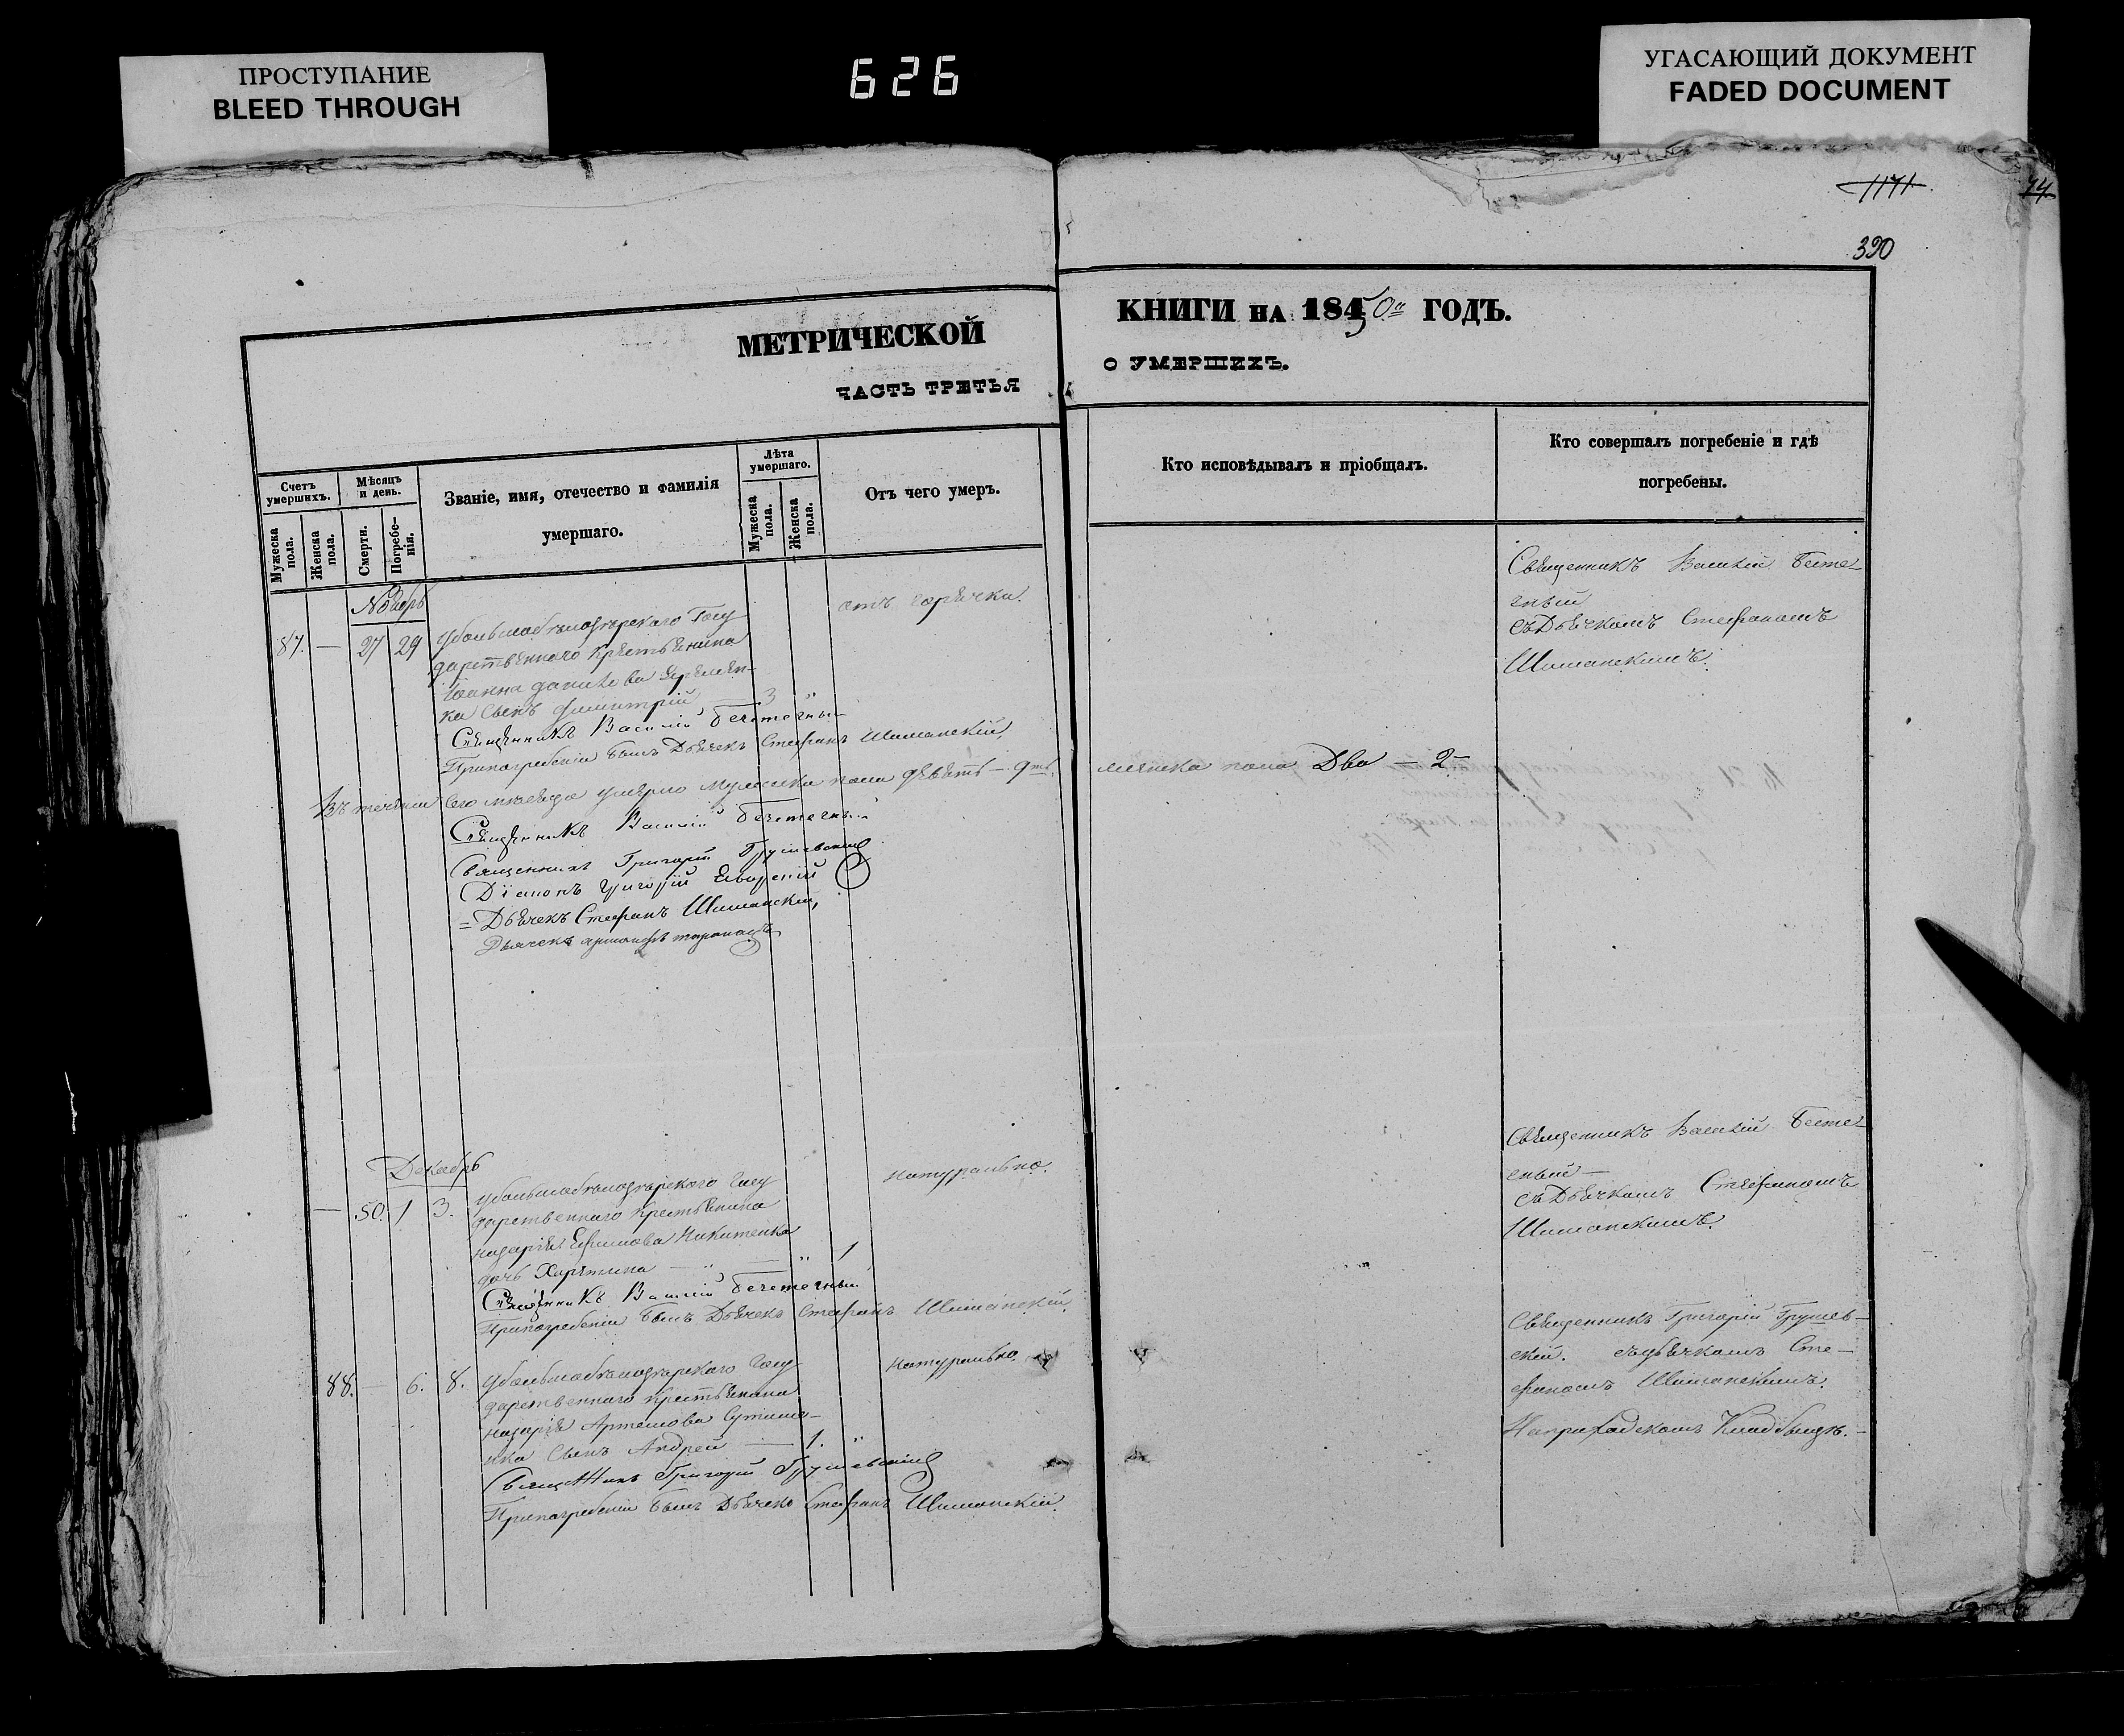 ПРОСТУПАНИЕ
BLEED THROUGH
626
УГАСАЮЩИЙ ДОКУМЕНТ
FADED DOCUMENT
1171
74
390
МЕТРИЧЕСКОЙ
ЧАСТЬ ТРЕТЬЯ
КНИГИ НА 1850го ГОДЪ.
О УМЕРШИХЪ.
Счетъ умершихъ.
Мужеска пола.
Женска пола.
Мѣсяцъ и день.
Смерти.
Погребе-
нія.
Званіе, имя, отечество и фамилія
умершаго.
Лѣта умершаго.
Мужеска пола.
Женска пола.
Отъ чего умеръ.
Кто исповѣдывалъ и пріобщалъ.
Кто совершалъ погребеніе и гдѣ
погребены.
Ноябрь
87. — 27 29
Госу
дарственнаго крестьянина
Іоанна Данилова Еремен-
ка сынъ Димитрій — 3 "
отъ горячки.
Священникъ Василій
съ Дьячкомъ Стефаномъ
Шиманскимъ.
Священникъ Василій
Припогребеніи былъ Дьячекъ Стефанъ Шиманскій,
Въ теченіи сего месяца умерло мужеска пола девять — 9ть,
женска пола Два — 2
Священникъ Василій
Священникъ Григорій Грушевскій
Діаконъ Григорій Яворскій
Дьячекъ Стефанъ Шиманскій,
Дьячекъ
Декабрь
— 50. 1 3.
Госу
дарственнаго крестьянина
Назарія Ефимова Никитенка
дочь Харитина — " — " 1
натурально.
Священникъ Василій
съ Дьячкомъ Стефаномъ
Шиманскимъ.
Священникъ Василій
Припогребеніи былъ Дьячекъ Стефанъ Шиманскій.
88. — 6. 8.
Госу
дарственнаго крестьянина
Назарія Артемова
сынъ Андрей — 1. "
натурально.
Священникъ Григорій Грушев-
скій. съ дьячкомъ Сте-
фаномъ Шиманскимъ.
Наприходскомъ Кладбищѣ.
Священникъ Григорій Грушевскій
Припогребеніи былъ Дьячекъ Стефанъ Шиманскій.